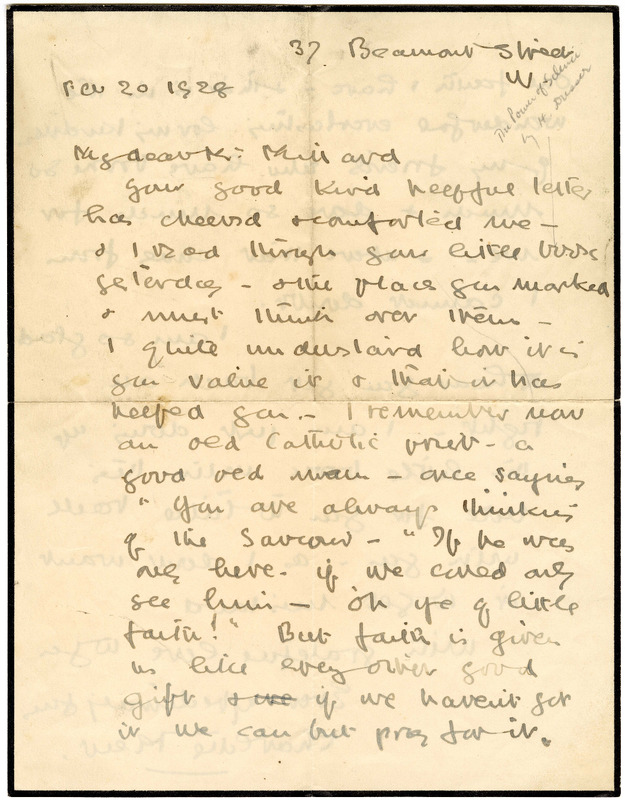 37 Beaumont Street
W
Feb 20 1928
The Power of Silence
by H Dresser
My dear Mr. Millard
Your good kind helpful letter
has cheered & comforted me –
& I read through your little book
yesterday – & the place you marked
& must think over them –
I quite understand how it is
you value it & that it has
helped you. – I remember now
an old Catholic priest – a
good old man – once saying
"You are always thinking
of the Saviour – "If he was
only here – if we could only
see him – 'oh ye of little
faith!" But faith is given
us like every other good
gift & if we haven't got
it we can but pray for it.